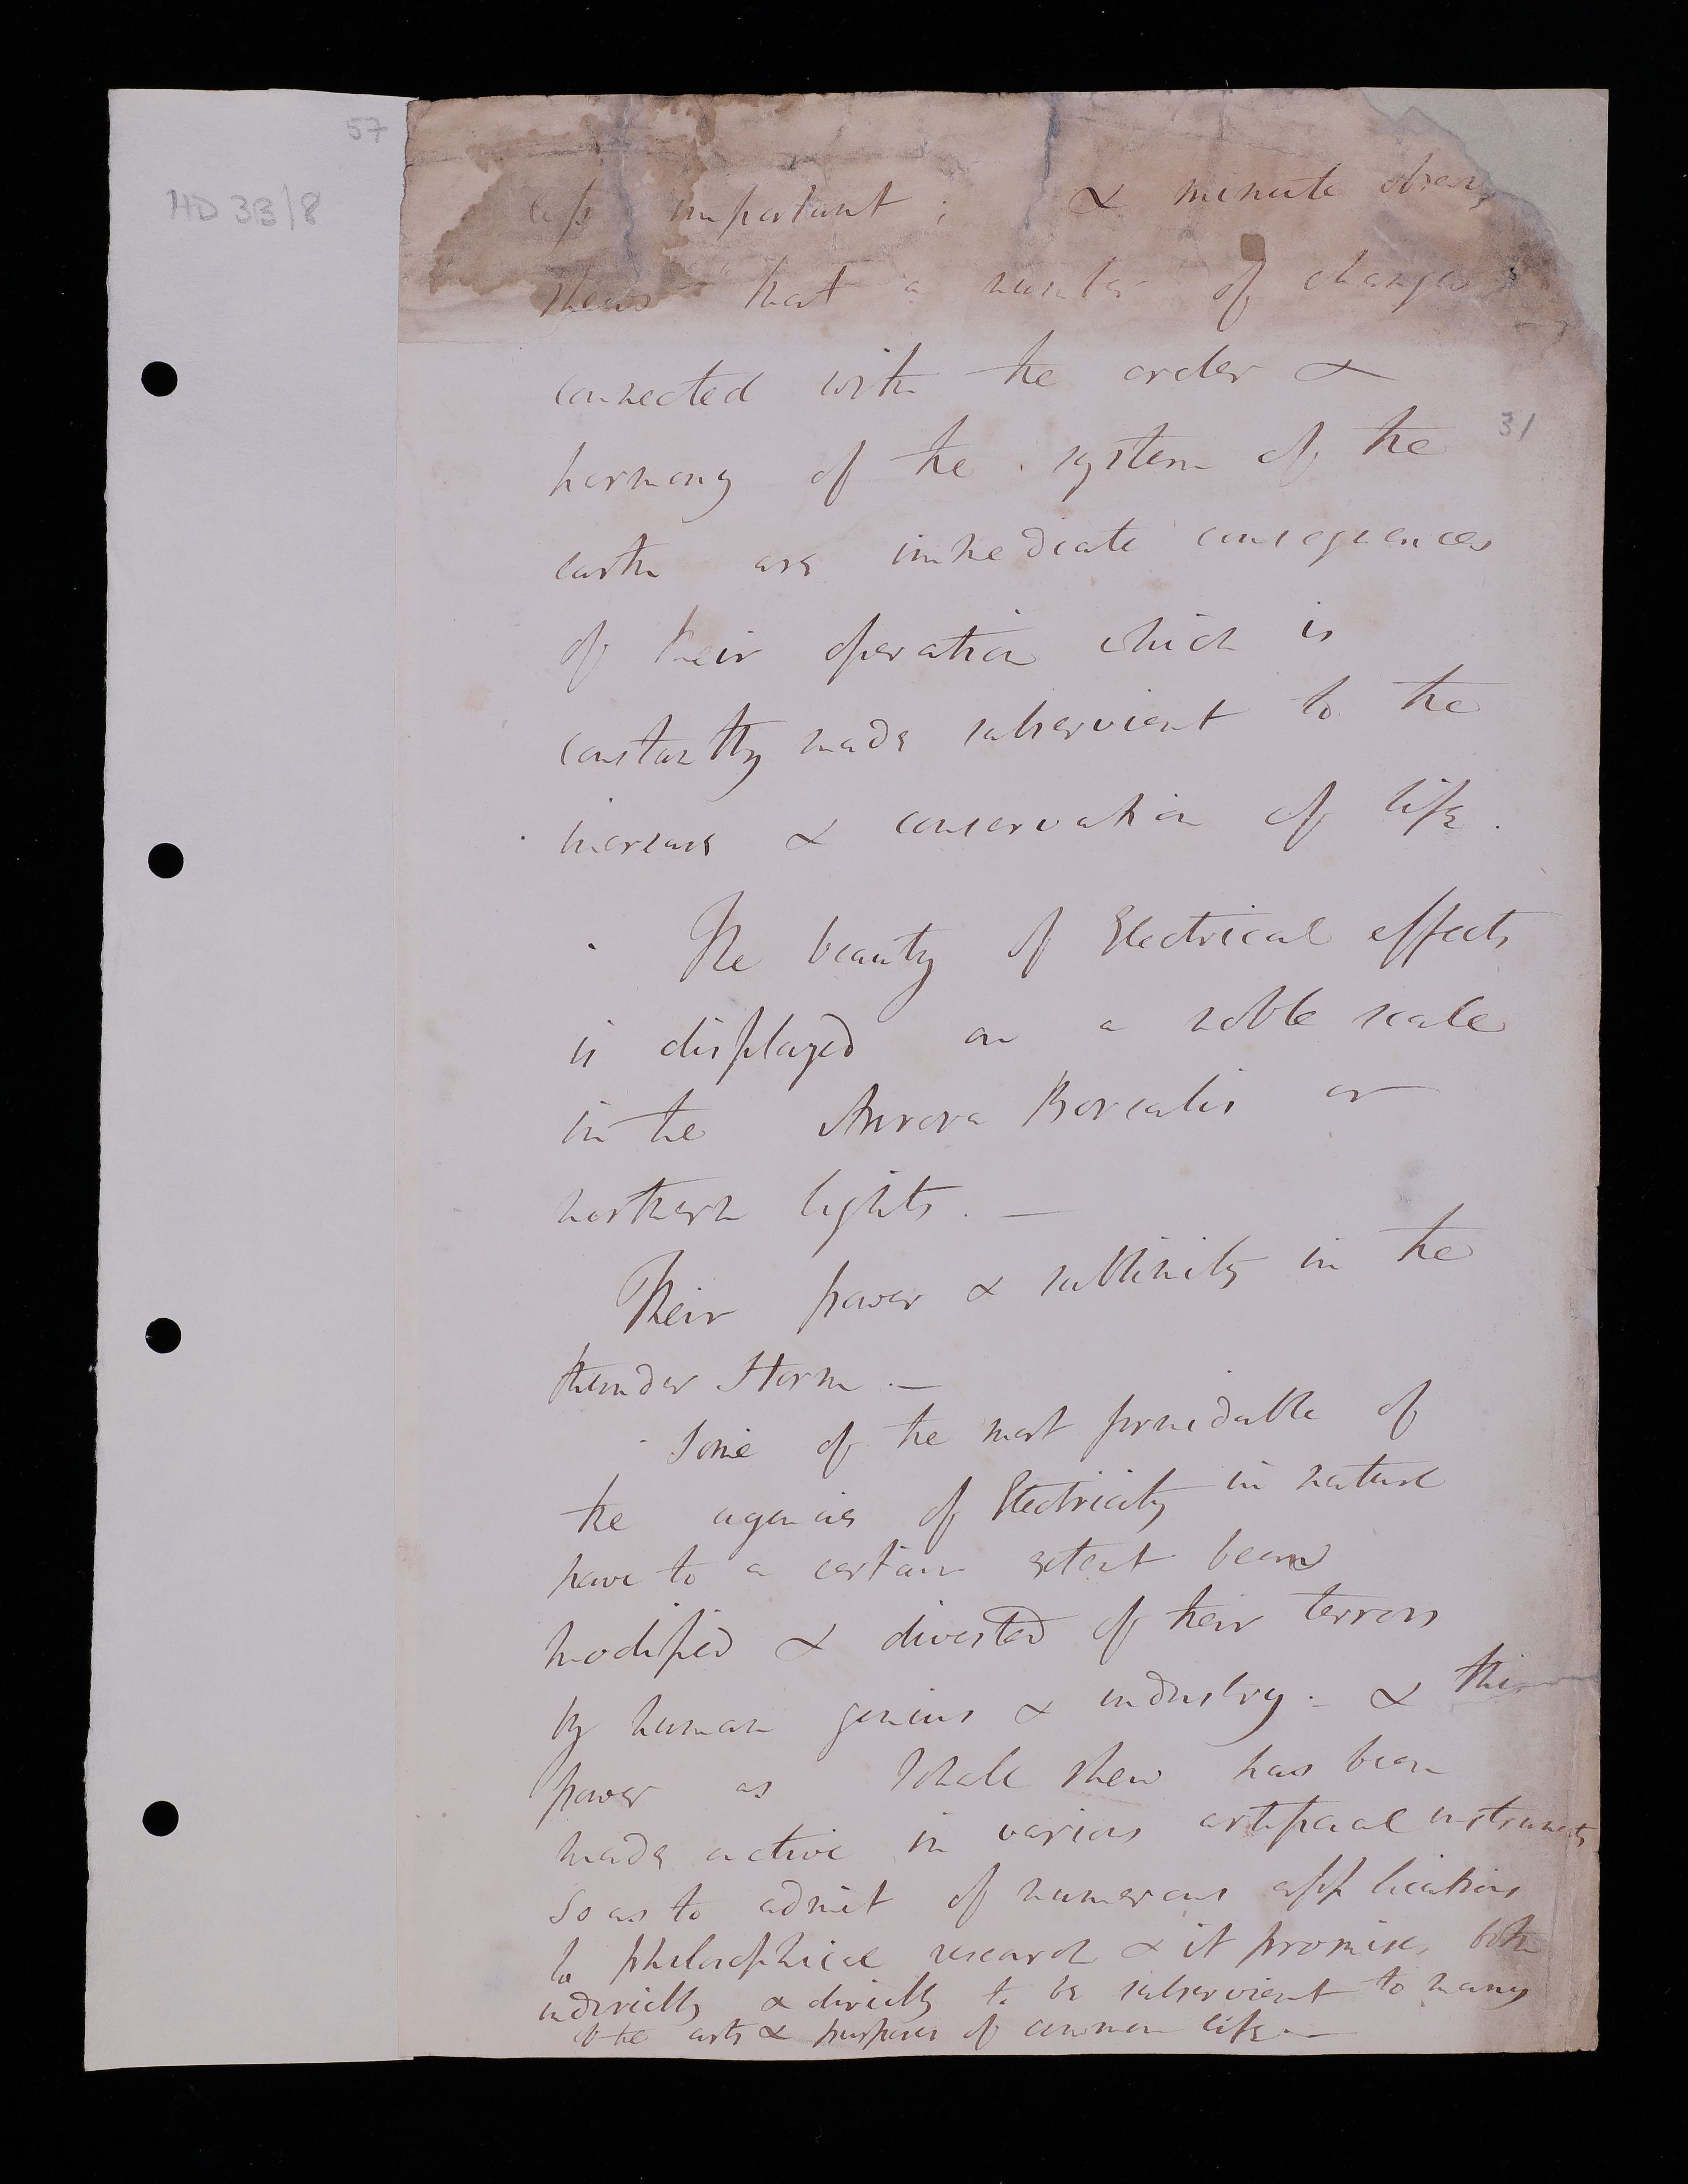 57
HD 3B/8
less important ; & minute obser
shews that a number of changes
connected with the order &
31
harmony of the system of the
earth are immediate consequences
of their operation which is
constantly made subservient to the
increase & conservation of life.
The beauty of Electrical effects
is displayed on a noble scale
in the Aurora Borealis or
northern lights. —
Their power & sublimity in the
thunder Storm. —
Some of the most formidable of
the agencies of Electricity in nature
have to a certain extent been
modified & divested of their terrors
by human genius & industry. – & this
power as I shall shew has been
made active in various artificial instruments
so as to admit of numerous applications
to philosophical research & it promises both
indirectly & directly to be subservient to many
of the arts & purposes of common life. —